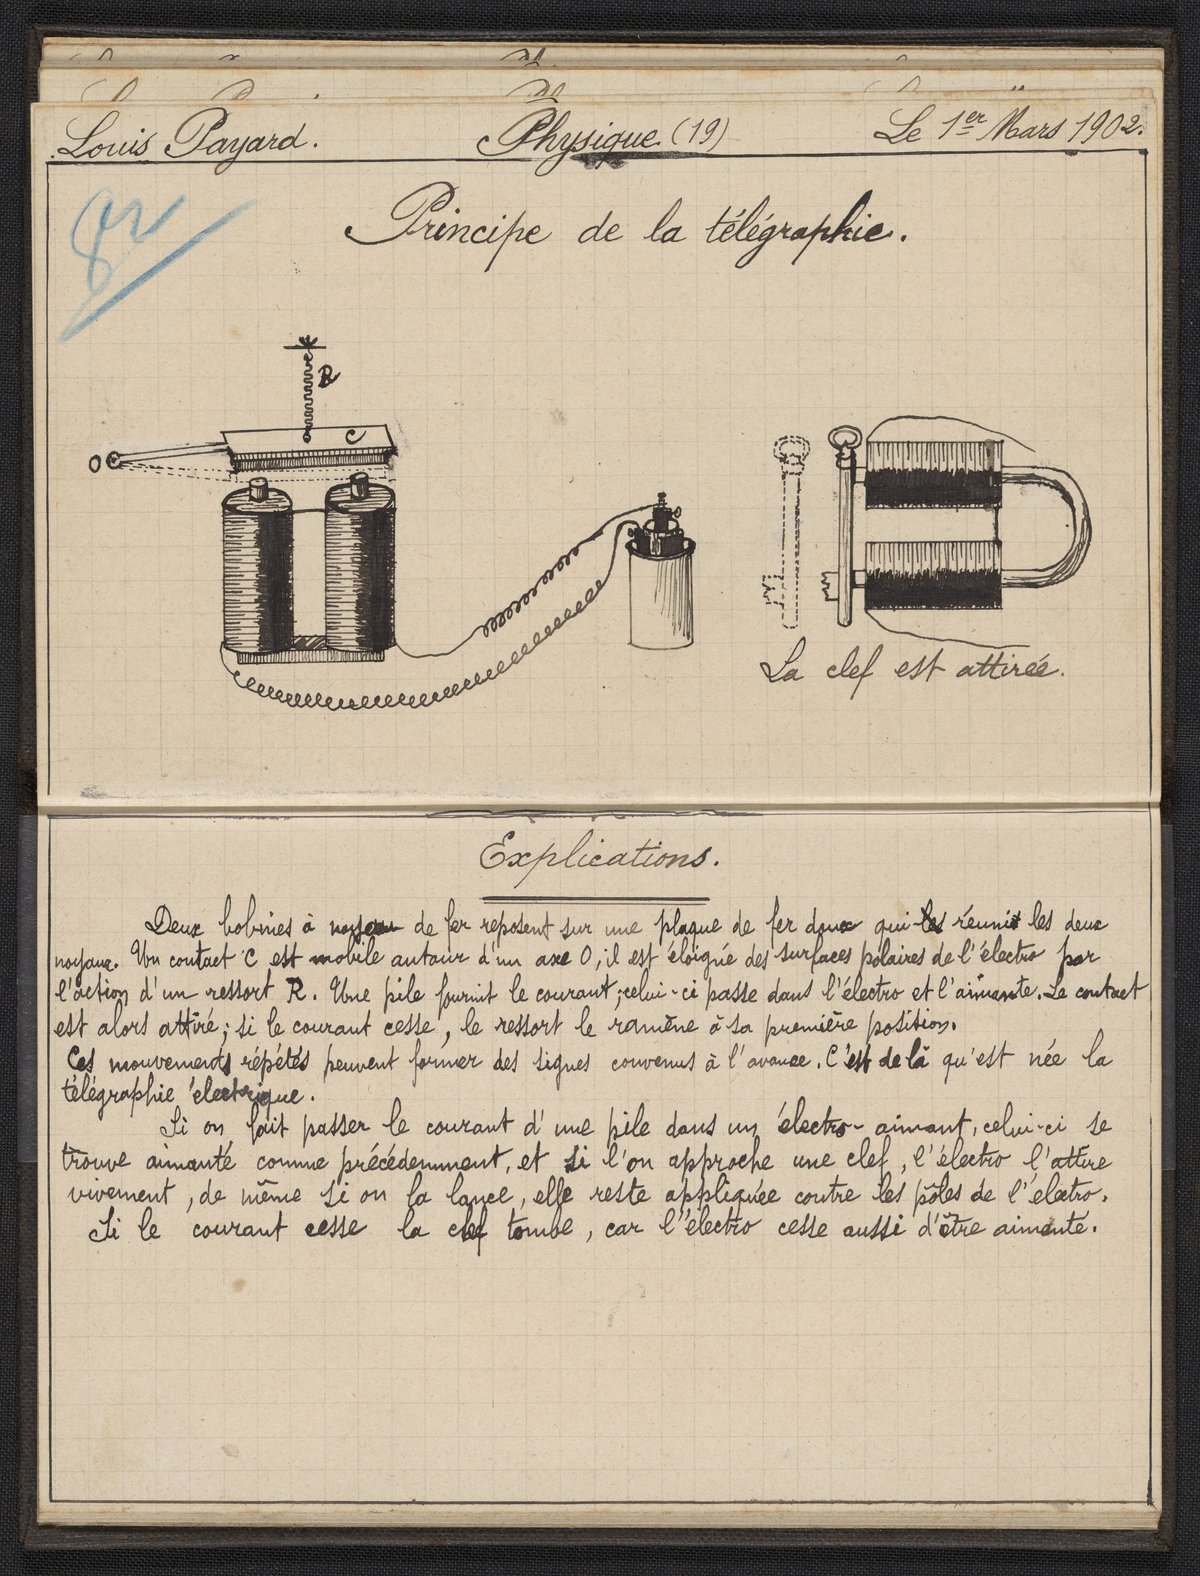 Louis Payard. Physique (19) Le 1er Mars 1902.
Principe de la télégraphie.
R
C
O
La clef est attirée.
Explications.
Deux bobines à noyau de fer reposent sur une plaque de fer doux qui les réunit les deux
noyaux. Un contact C est mobile autour d'un axe O; il est éloigné des surfaces polaires de l'électro par
l'action d'un ressort R. Une pile fournit le courant; celui-ci passe dans l'électro et l'aimante. Le contact
est alors attiré; si le courant cesse, le ressort le ramène à sa première position.
Ces mouvements répétés peuvent former des signes convenus à l'avance. C'est de là qu'est née la
télégraphie électrique.
Si on fait passer le courant d'une pile dans un électro-aimant, celui-ci se
trouve aimanté comme précédemment, et si l'on approche une clef, l'électro l'attire
vivement, de même si on la lance, elle reste appliquée contre les pôles de l'électro.
Si le courant cesse la clef tombe, car l'électro cesse aussi d'être aimanté.